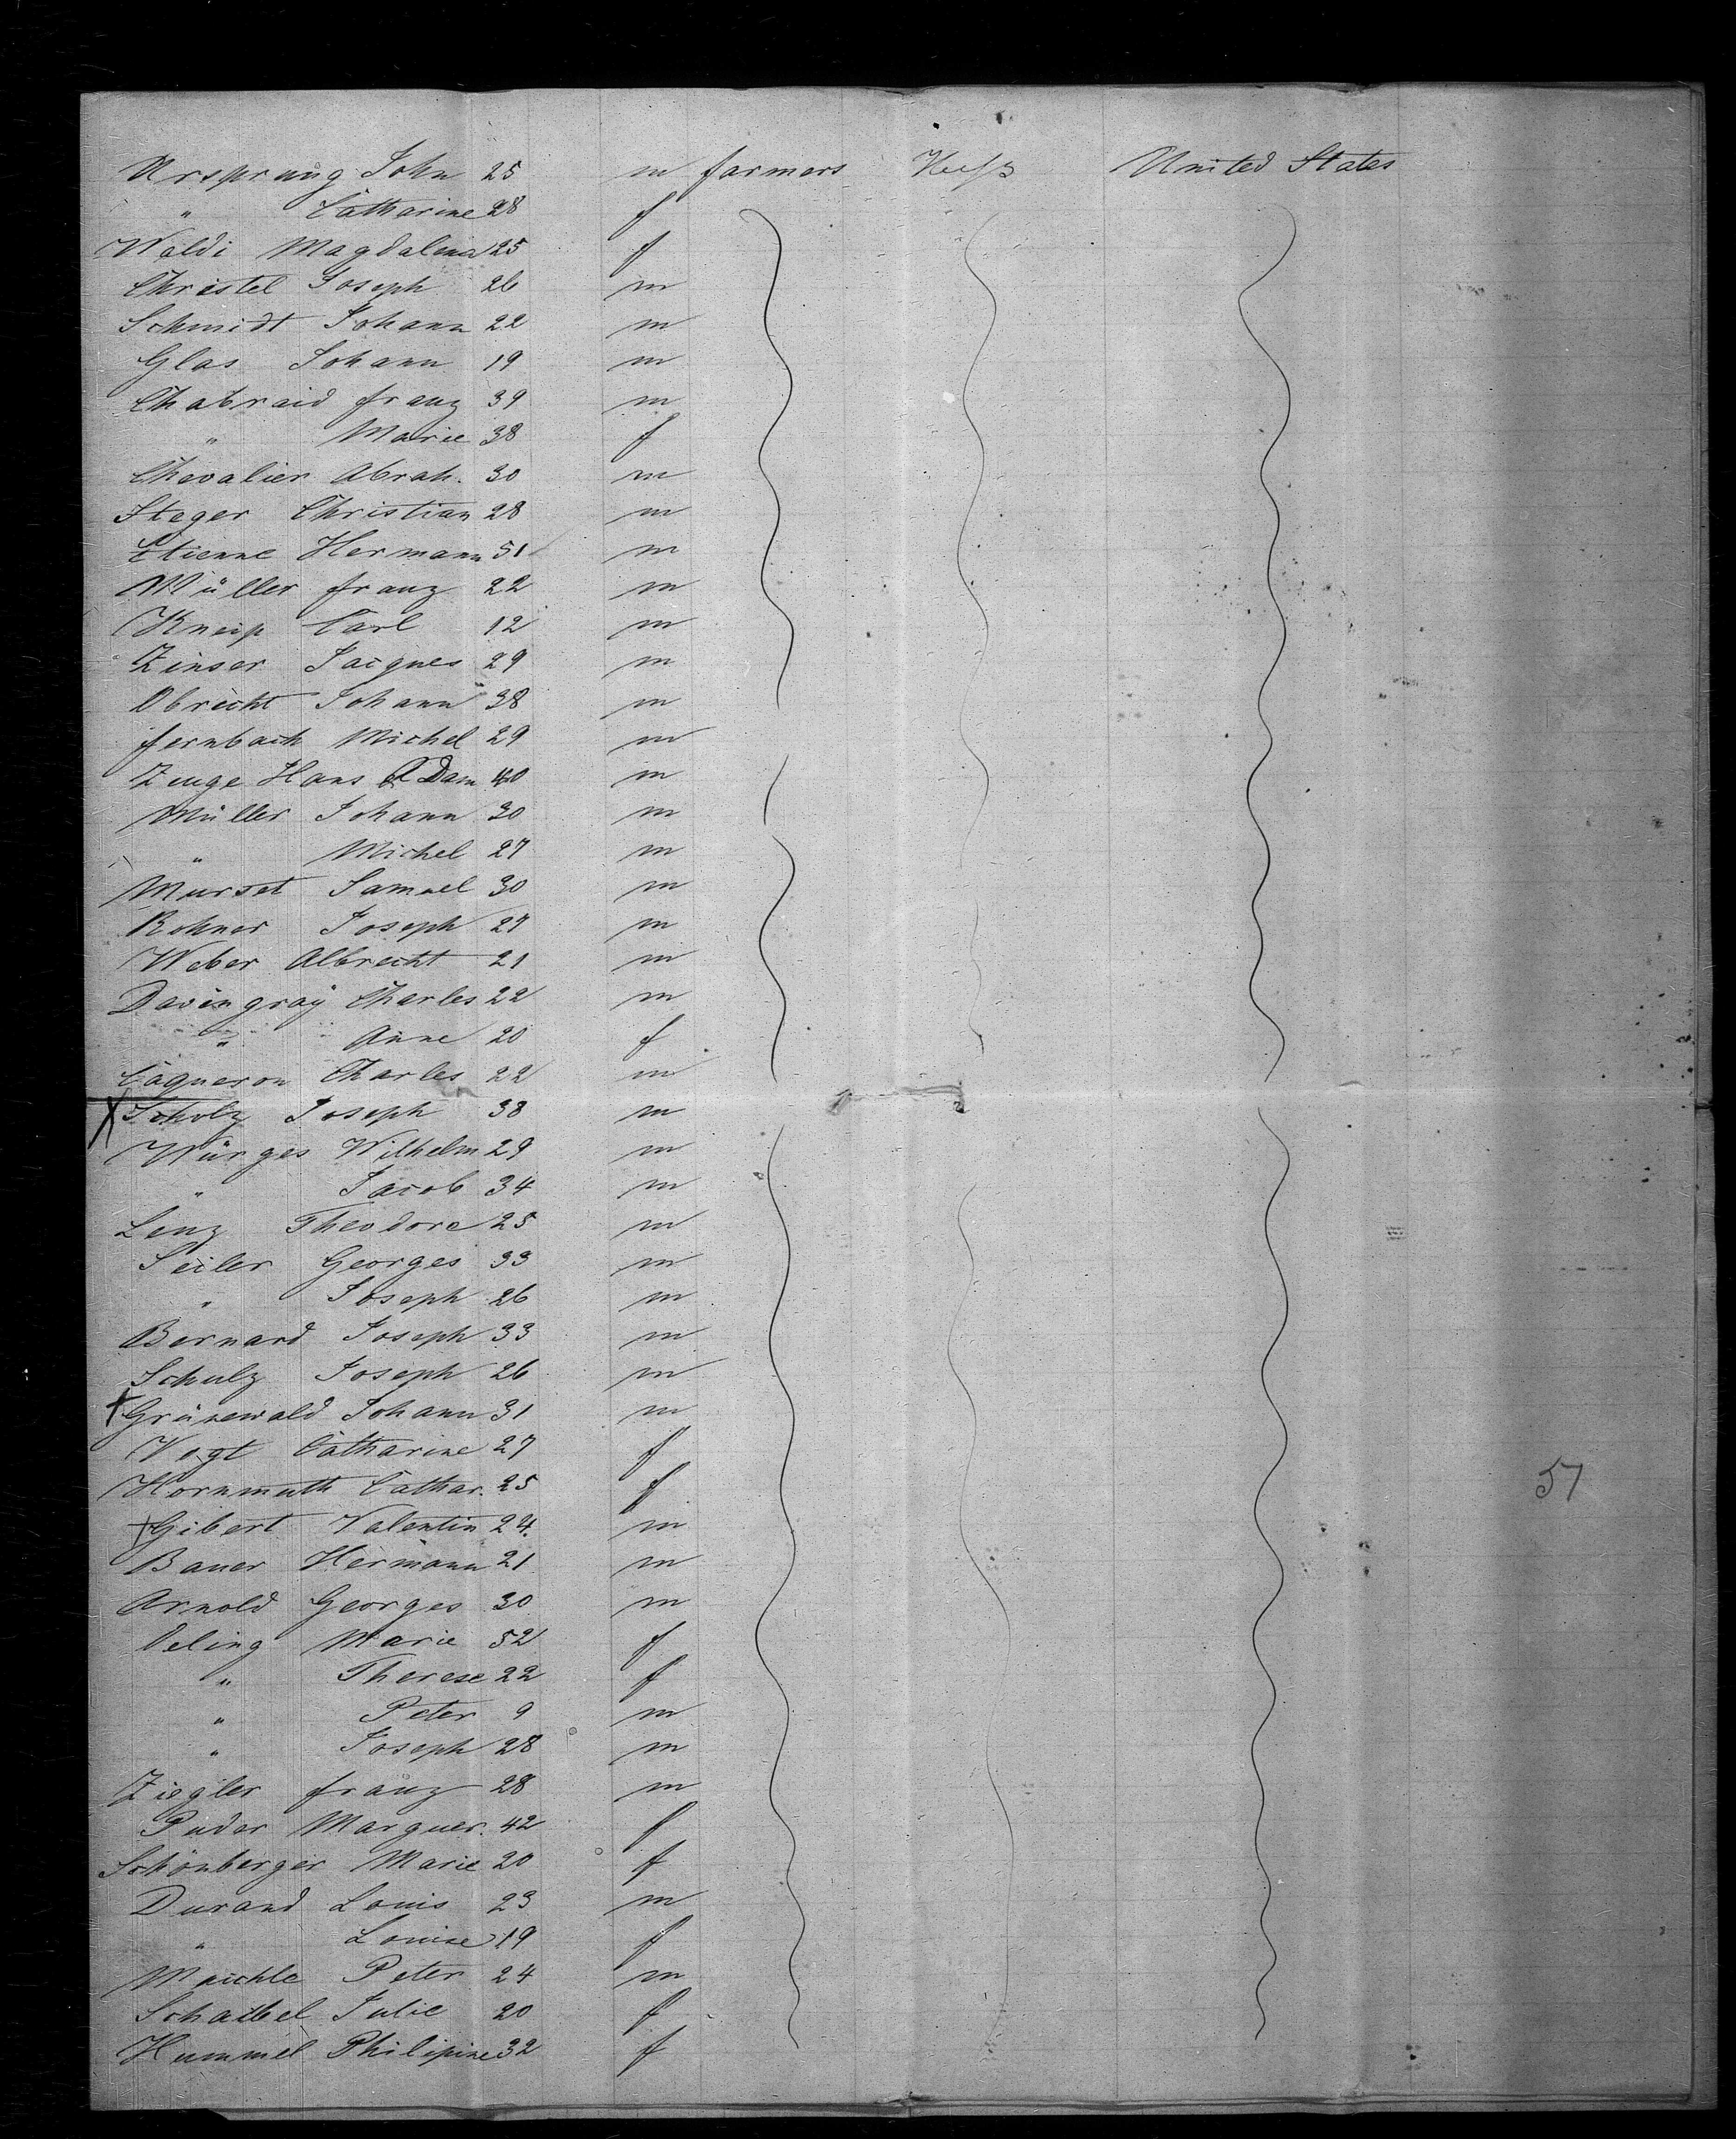 Ursprung John 25 m farmers United States
" Catharine 28 f
Waldi Magdalena 25 f
Christel Joseph 26 m
Schmidt Johann 22 m
Glas Johann 19 m
Chabraid franz 39 m
" Marie 38 f
Chevalier Abrah. 30 m
Steger Christian 28 m
Etienne Hermann 51 m
Müller franz 22 m
Kneip Carl 12 m
Zinser Jacques 29 m
Obrecht Johann 38 m
fernbach Michel 29 m
Zuge Hans Adam 40 m
Müller Johann 30 m
" Michel 27 m
Murset Samuel 30 m
Rohner Joseph 27 m
Weber Albrecht 21 m
Davingray Charles 22 m
" Anne 20 f
Cagneron Charles 22 m
X Scholz Joseph 38 m
Würges Wilhelm 29 m
" Jacob 34 m
Lenz Theodore 25 m
Seiler Georges 33 m
" Joseph 26 m
Bernard Joseph 33 m
Schulz Joseph 26 m
X Grünewald Johann 31 m
Vogt Catharine 27 f
Hornmuth Cathar. 25 f
57
X Gibert Valentin 24. m
Bauer Hermann 21 m
Arnold Georges 30 m
Oeling Marie 52 f
" Therese 22 f
" Peter 9 m
" Joseph 28 m
Ziegler franz 28 m
Puder Marguer. 42 f
Schönberger Marie 20 f
Durand Louis 23 m
" Louise 19 f
Maichle Peter 24 m
Schaibel Julie 20 f
Hummel Philipine 32 f